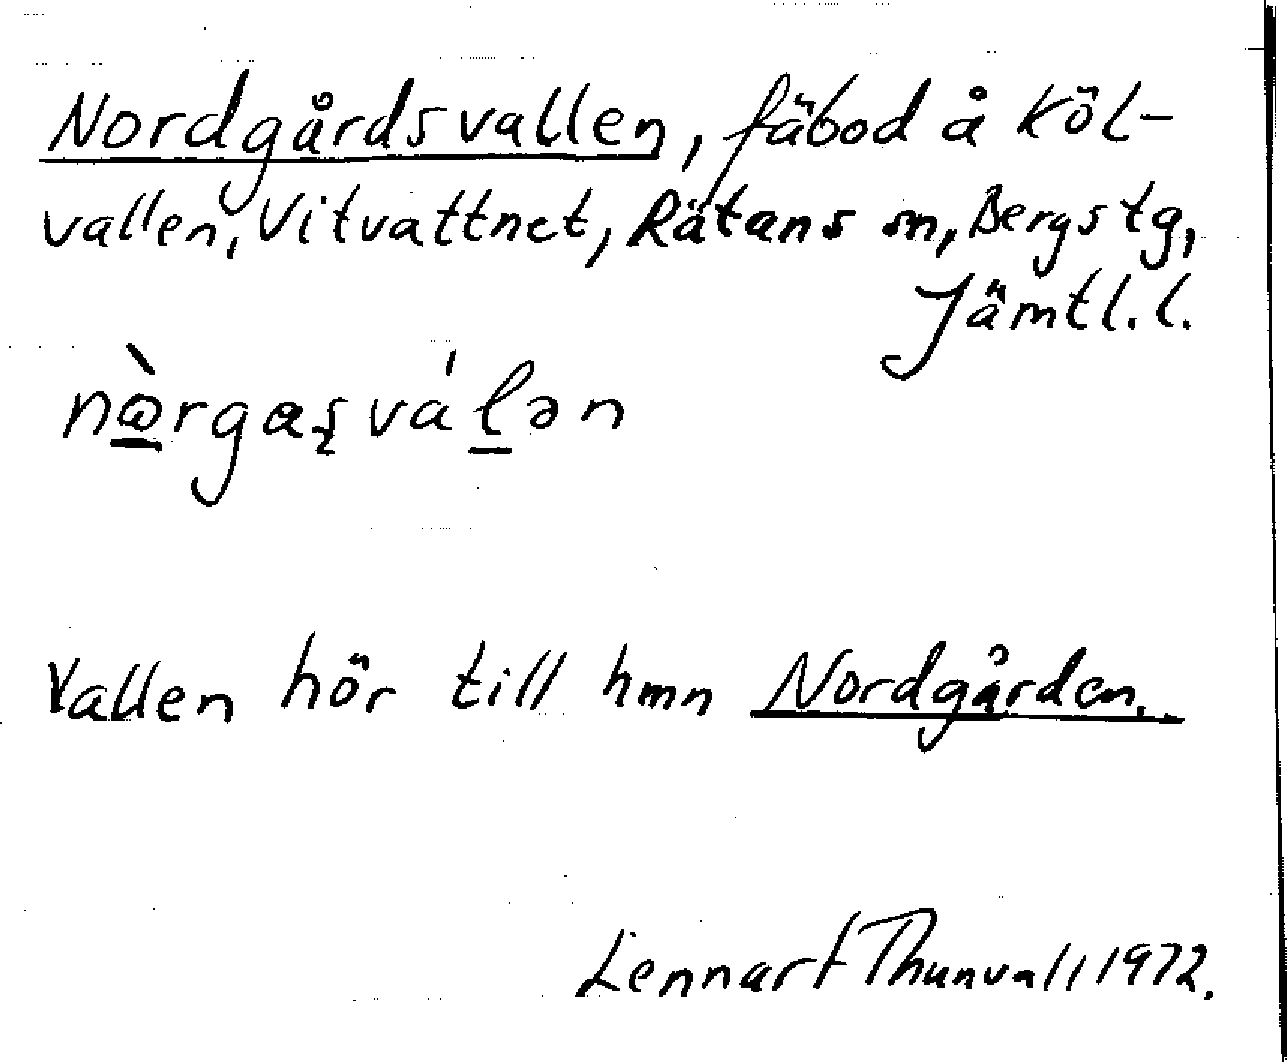 Nordgårdsvallen, fäbod å Köl-
vallen, Vitvattnet, Rätans sn, Bergs tg,
Jämtl. l.
nò̱rgaʂvá'ḻən
Vallen hör till hmn Nordgården.
Lennart Thunvall 1972.